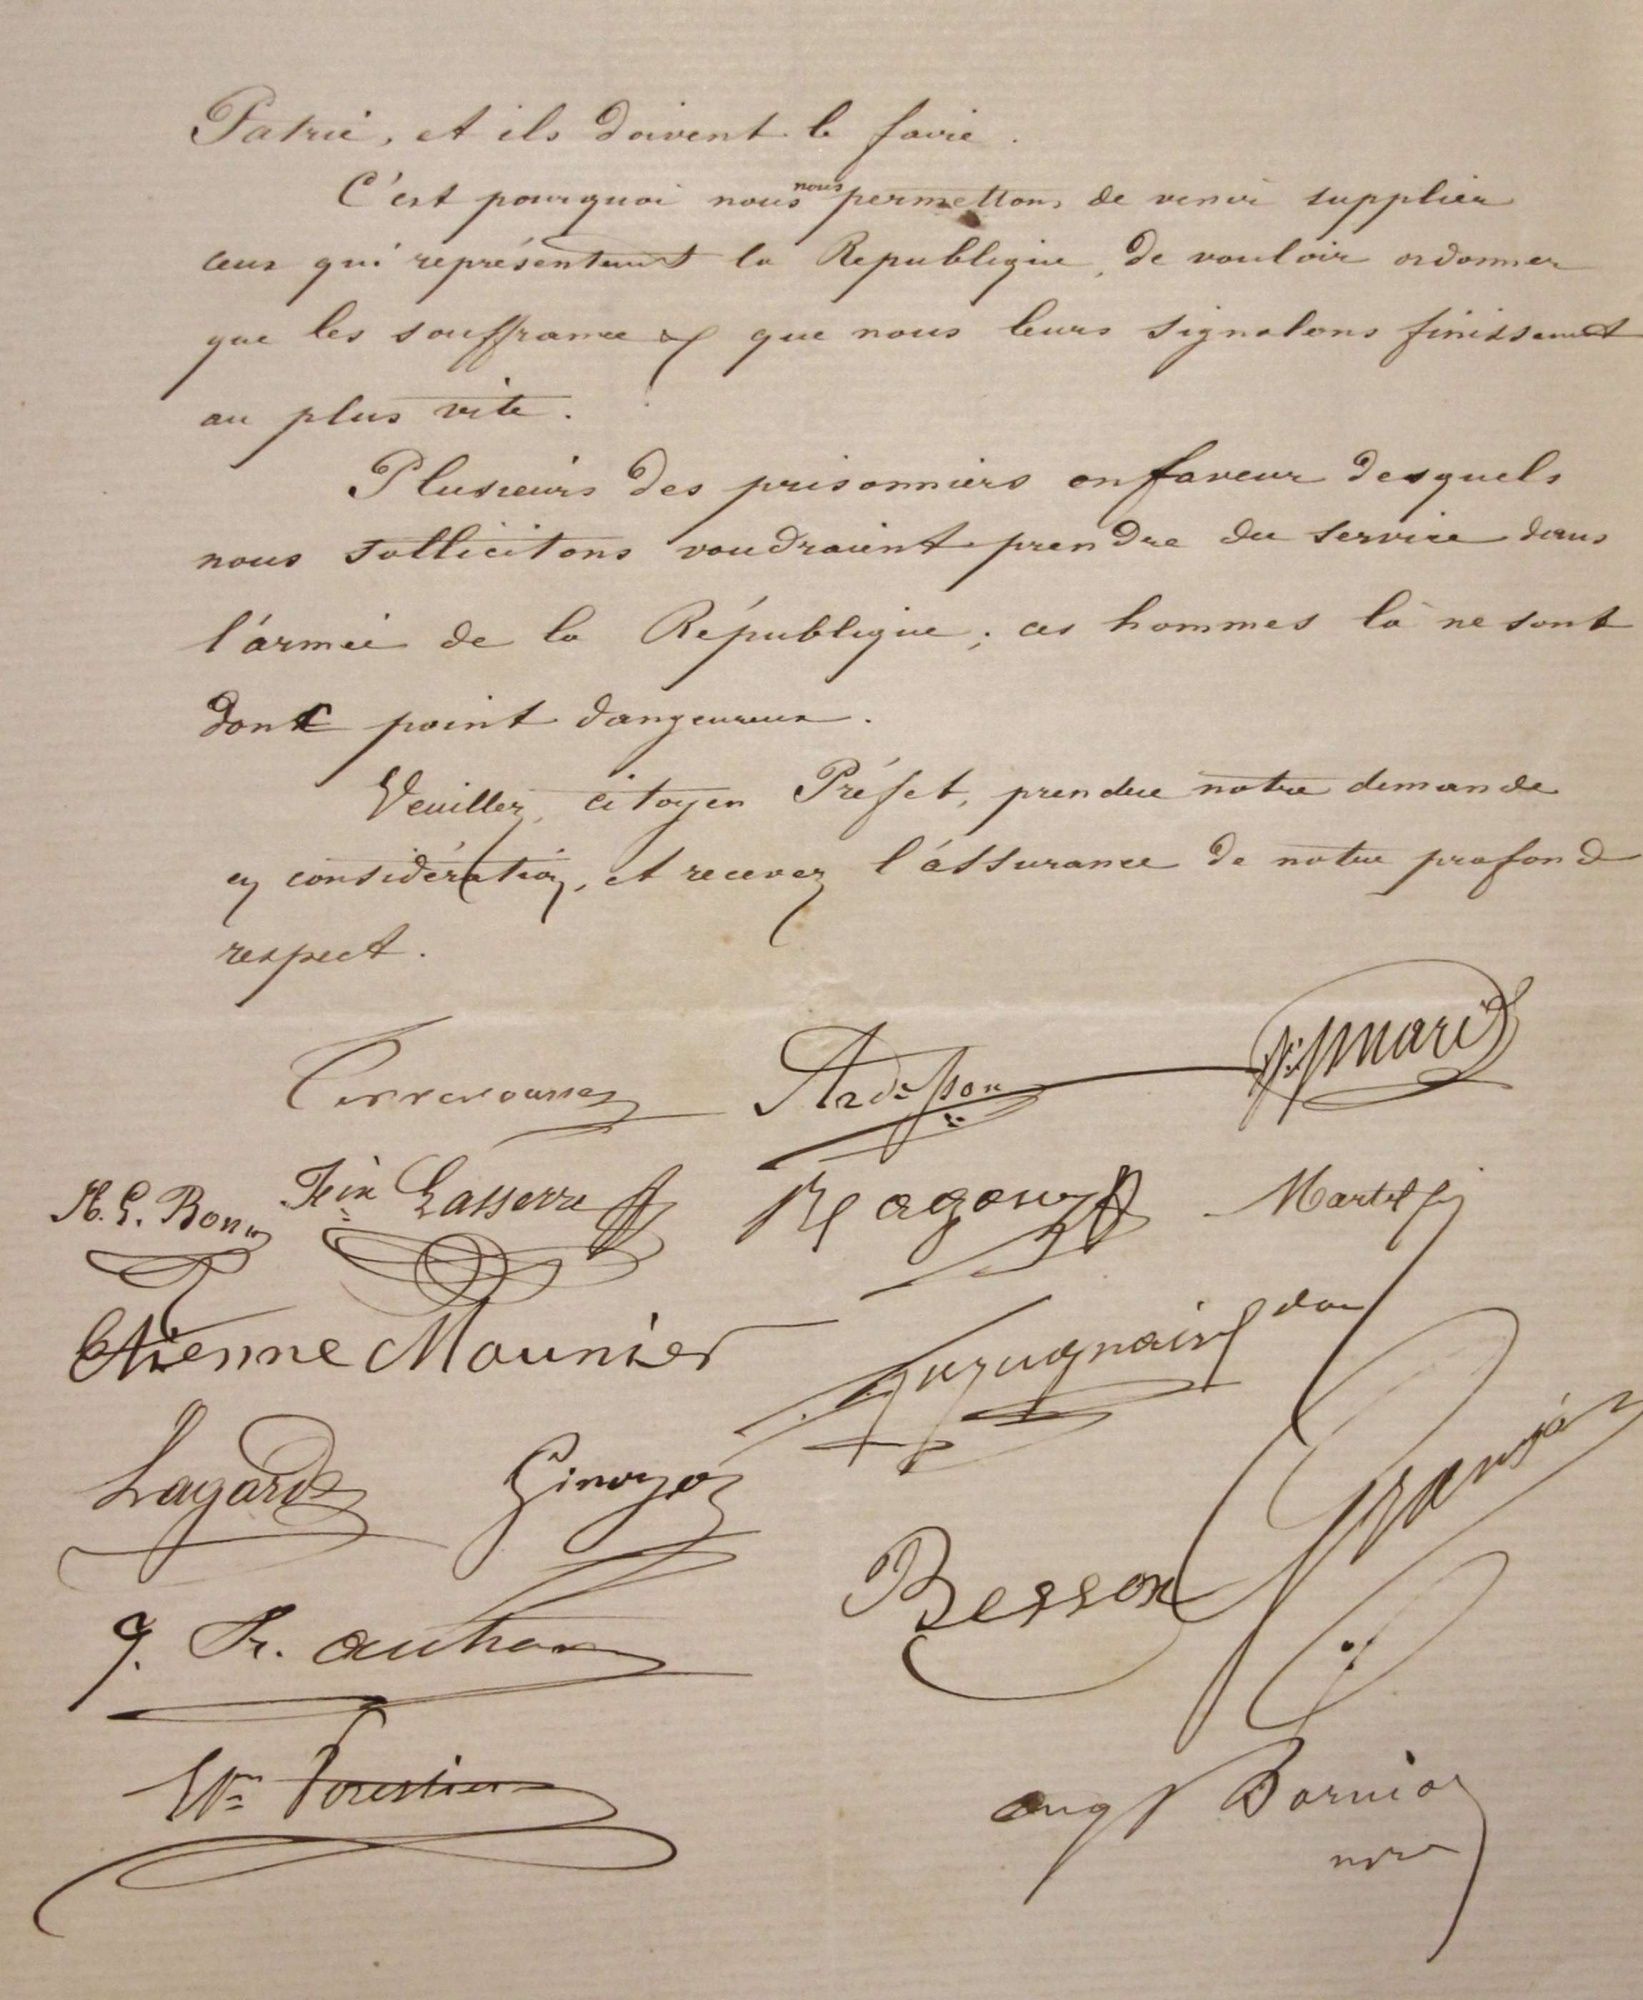 Patrie, et ils doivent le faire.
C'est pourquoi nous nous permettons de venir supplier
ceux qui représentent la Republique, de vouloir ordonner
que les souffrances que nous leurs signalons finissent
au plus vite.
Plusieurs des prisonniers en faveur desquels
nous sollicitons voudraient prendre du service dans
l'armée de la République; ces hommes là ne sont
donc point dangeureux.
Veuillez, citoyen Préfet, prendre notre demande
en considération, et recevez l'assurance de notre profond
respect.
Ardisson
H. G. Bon Lasserre Ragon Martel
Etienne Mounier
Lagarde
Besson
J. Fr. authon
Forestier